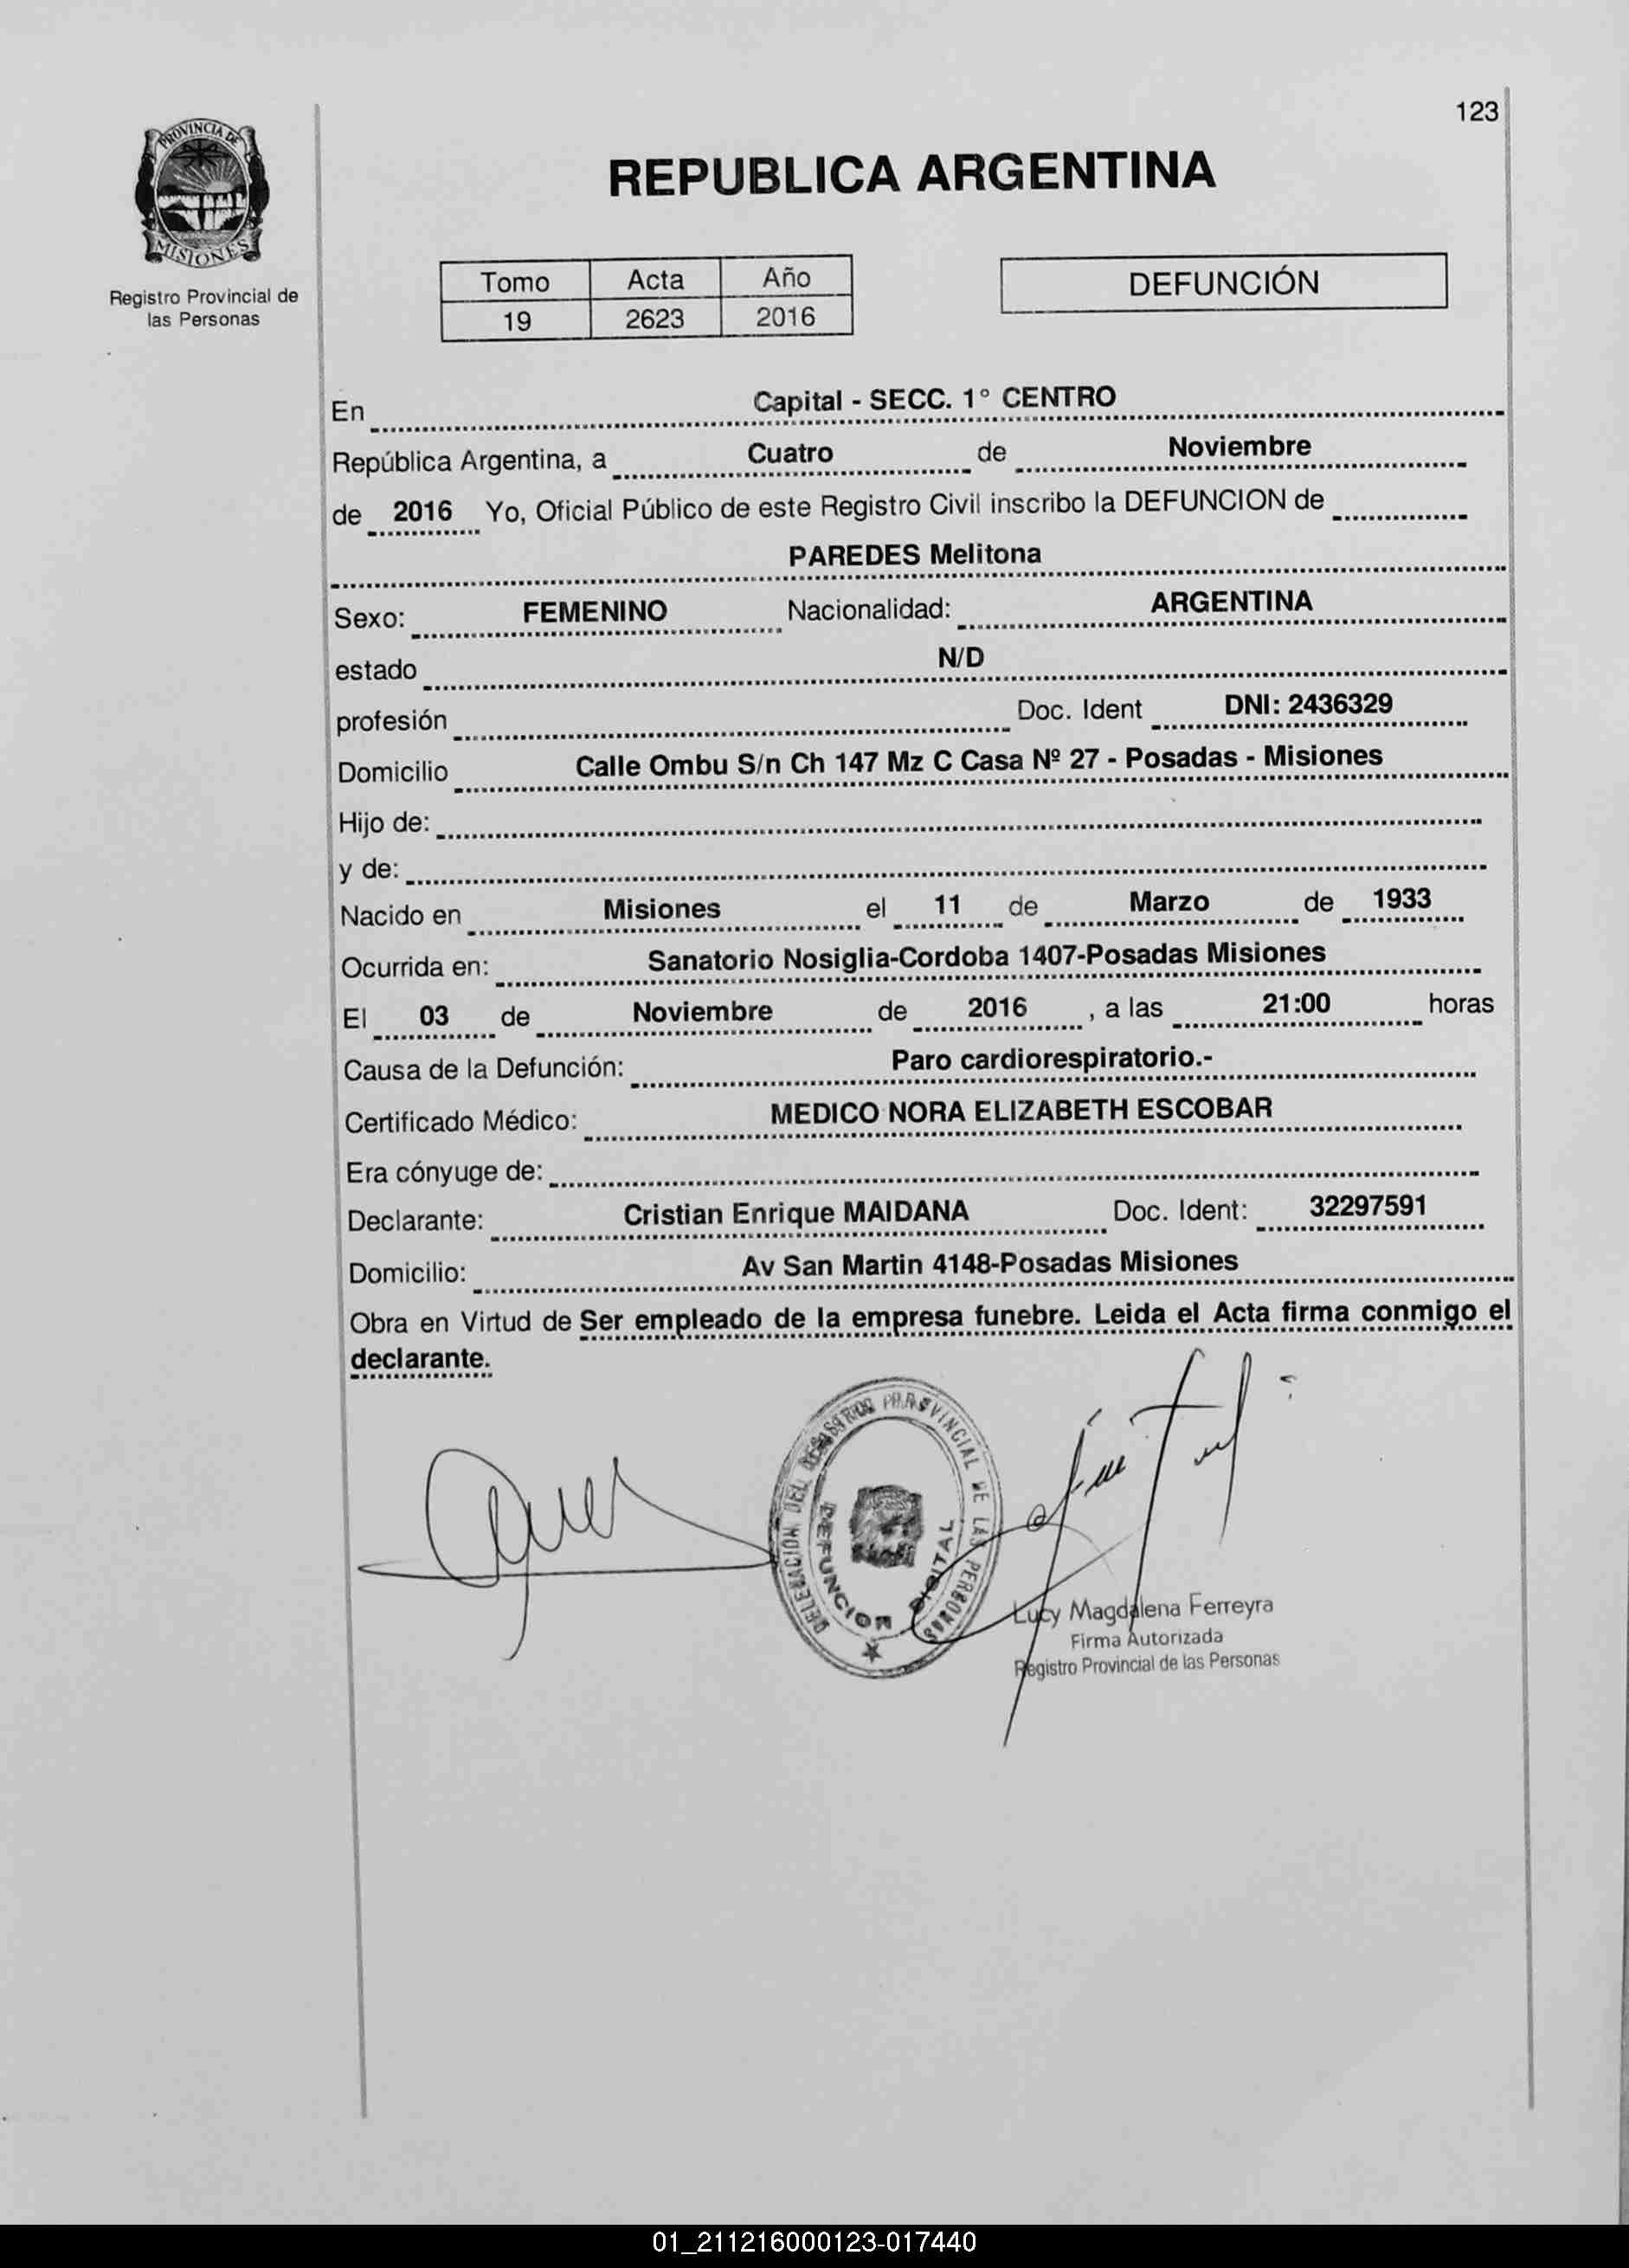 123
PROVINCIA DE
MISIONES
Registro Provincial de
las Personas
REPUBLICA ARGENTINA
Tomo Acta Año
19 2623 2016
DEFUNCIÓN
En Capital - SECC. 1° CENTRO
República Argentina, a Cuatro de Noviembre
de 2016 Yo, Oficial Público de este Registro Civil inscribo la DEFUNCION de
PAREDES Melitona
Sexo: FEMENINO Nacionalidad: ARGENTINA
estado N/D
profesión Doc. Ident DNI: 2436329
Domicilio Calle Ombu S/n Ch 147 Mz C Casa Nº 27 - Posadas - Misiones
Hijo de:
y de:
Nacido en Misiones el 11 de Marzo de 1933
Ocurrida en: Sanatorio Nosiglia-Cordoba 1407-Posadas Misiones
El 03 de Noviembre de 2016 , a las 21:00 horas
Causa de la Defunción: Paro cardiorespiratorio.-
Certificado Médico: MEDICO NORA ELIZABETH ESCOBAR
Era cónyuge de:
Declarante: Cristian Enrique MAIDANA Doc. Ident: 32297591
Domicilio: Av San Martin 4148-Posadas Misiones
Obra en Virtud de Ser empleado de la empresa funebre. Leida el Acta firma conmigo el
declarante.
DELEGACION DEL REGISTRO PROVINCIAL DE LAS PERSONAS
DEFUNCION DIGITAL
Lucy Magdalena Ferreyra
Firma Autorizada
Registro Provincial de las Personas
01_211216000123-017440